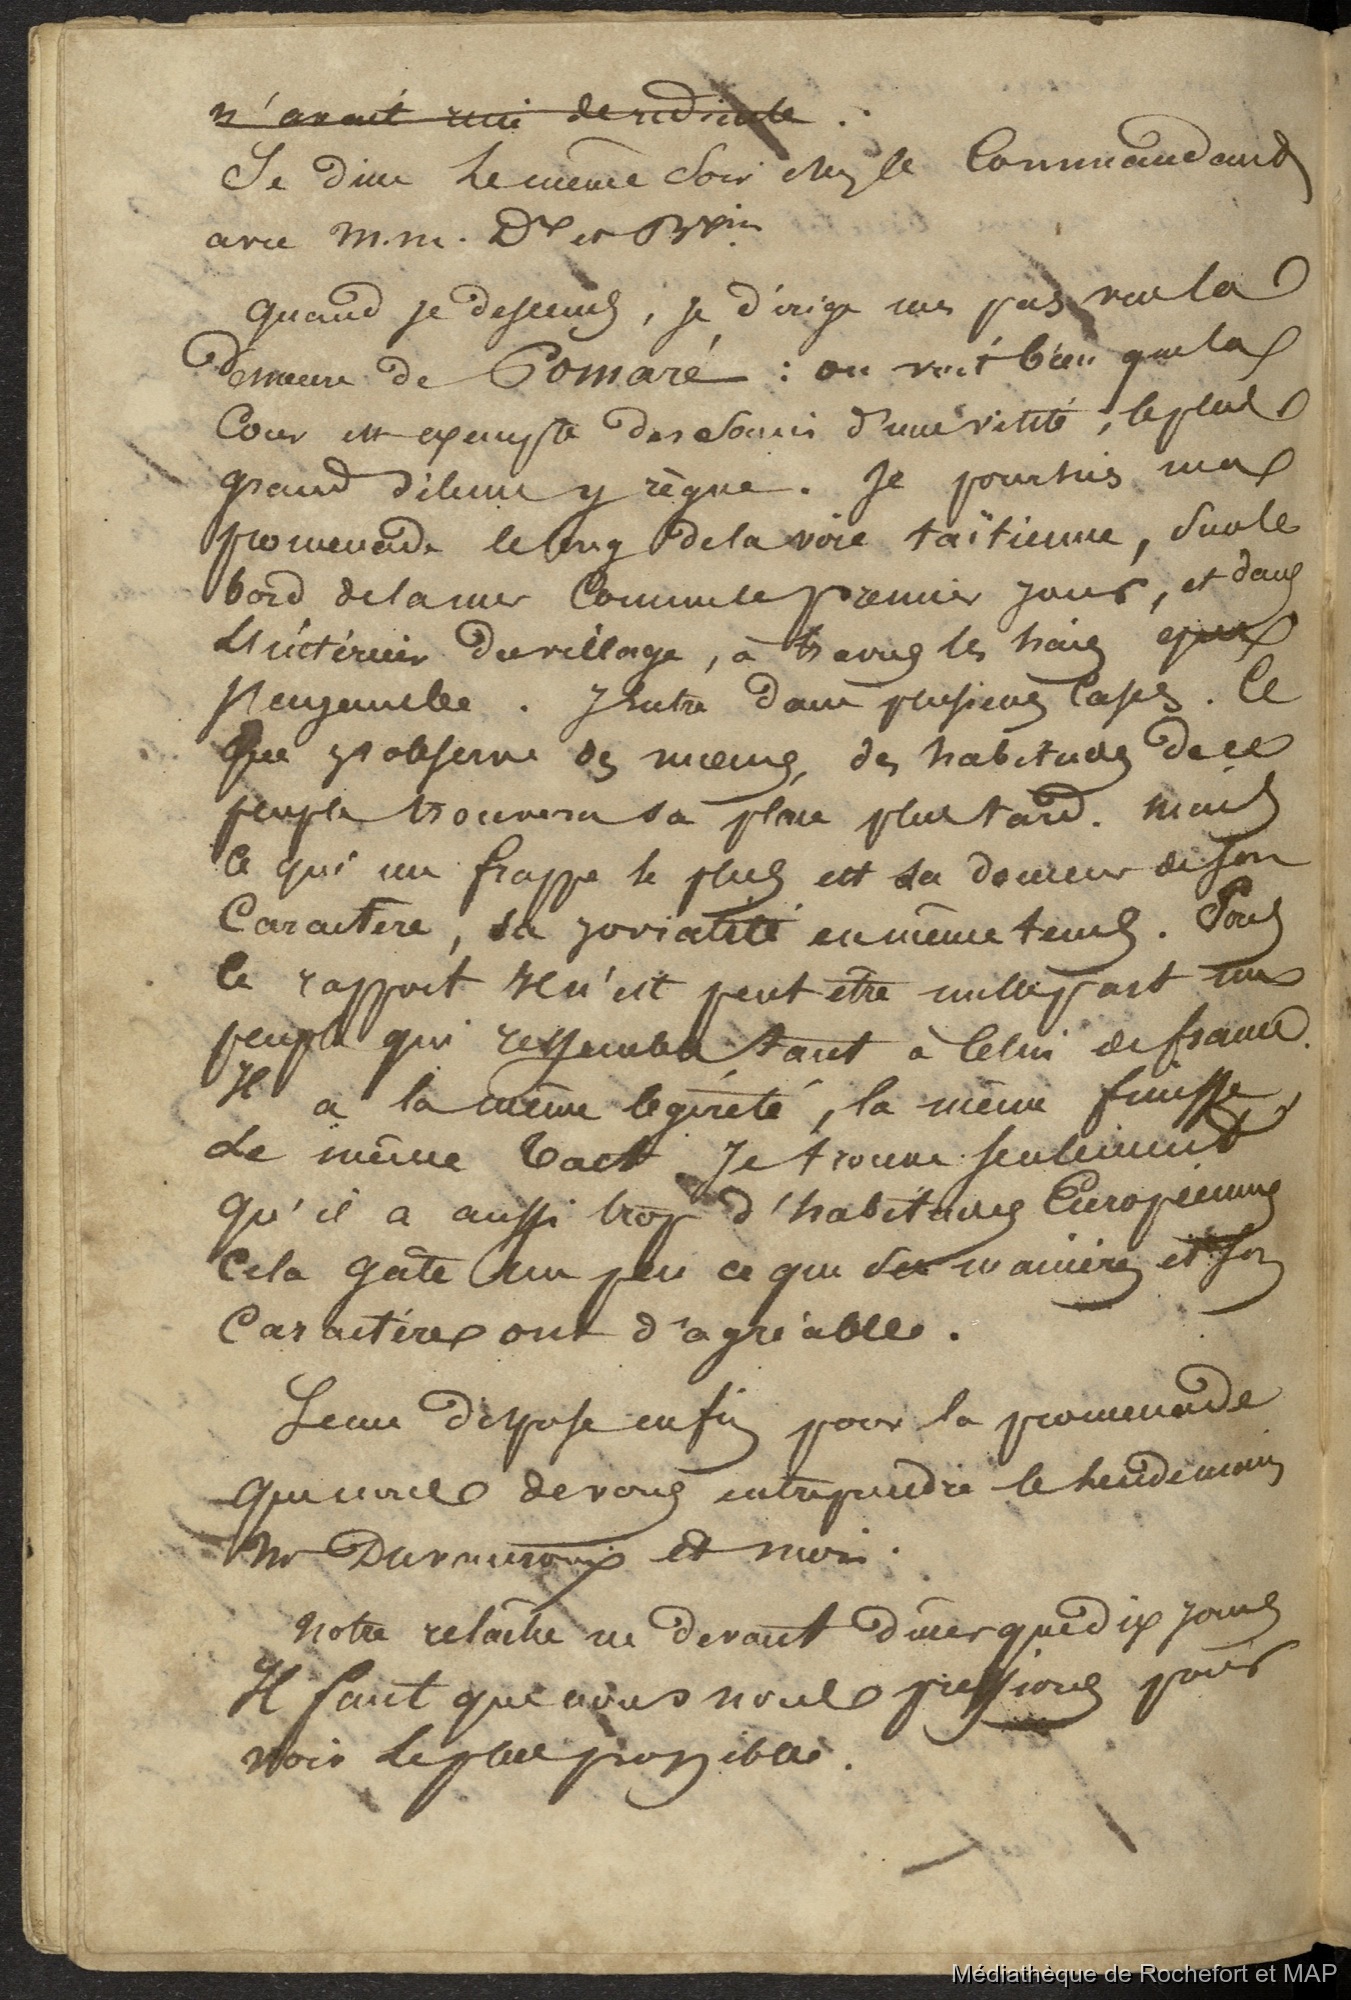 n'avait rien de ridicule.
Je dine le même soir chez le Commandant
avec M.M. Dx et
quand je descends, je dirige mes pas vers la
demeure de Pomaré : on voit bien que la
Cour est exempte des soucis d'une visite, le plus
grand silence y règne. Je poursuis ma
promenade le long de la voie taïtienne, sur le
bord de la mer comme le premier jour, et dans
l'intérieur du village, à travers les haies
J'entre dans plusieurs cases. Ce
que j'observe des mœurs, des habitudes de ce
peuple trouvera sa place plus tard. mais
ce qui me frappe le plus est la douceur de son
Caractère, sa jovialité en même tems. Sous
ce rapport il n'est peut être nulle part un
peuple qui ressemble tant à celui de france.
Il a la même légèreté, la même finesse,
le même tact. Je trouve seulement
qu'il a aussi trop d'habitudes Européennes
Cela gâte un peu ce que ses manières et son
Caractère ont d'agréable.
Je me dispose enfin pour la promenade
que nous devons entreprendre le lendemain
Mr et moi.
Notre relâche ne devant durer que dix jours
Il faut que nous nous pressions pour
voir le plus possible.
Médiathèque de Rochefort et MAP